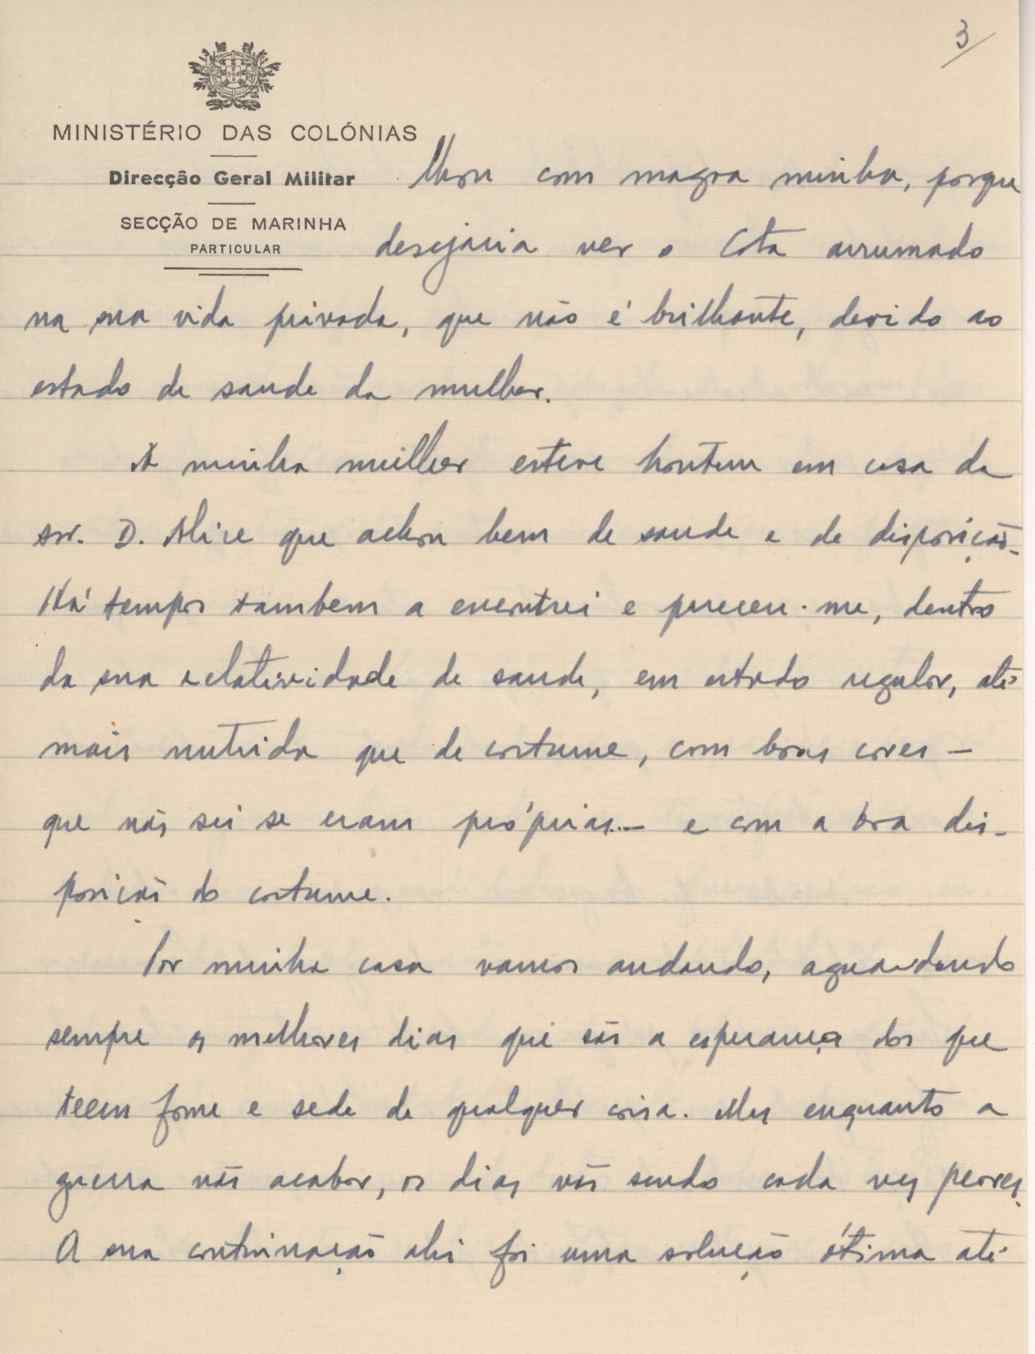 3/
MINISTÉRIO DAS COLÓNIAS
Direcção Geral Militar
SECÇÃO DE MARINHA
PARTICULAR
lhou com magoa minha, porque
desejaria ver o Cota arrumado
na sua vida privada, que não é brilhante, devido ao
estado de saude da mulher.
A minha mulher esteve hontem em casa da
snr. D. Alice que achou bem de saude e de disposição.
Há tempos tambem a encontrei e pareceu-me, dentro
da sua relatividade de saude, em estado regular, até
mais nutrida que de costume, com boas cores —
que não sei se eram próprias.— e com a boa dis-
posição do costume.
Por minha casa vamos andando, aguardando
sempre os melhores dias que são a esperança dos que
teem fome e sede de qualquer coisa. Mas enquanto a
guerra não acabar, os dias vão sendo cada vez peores.
A sua continuação ahi foi uma solução ótima até